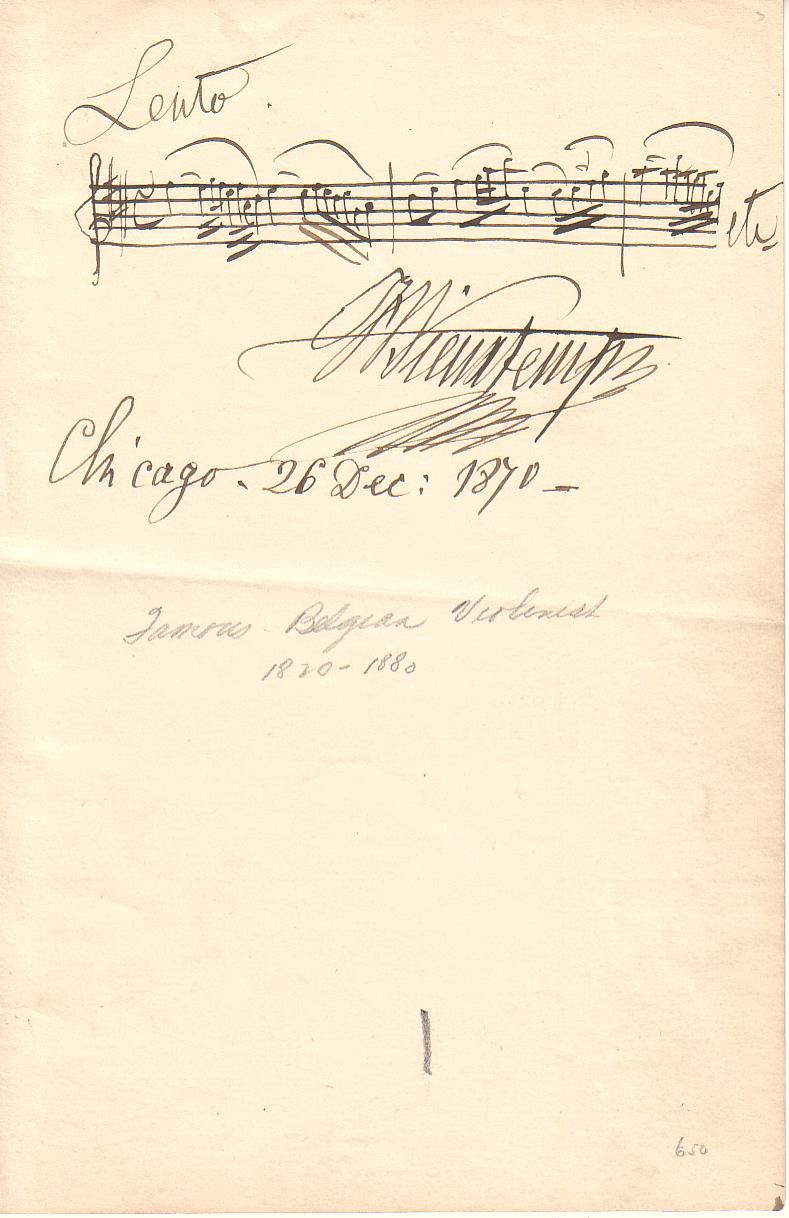 Lento.
etc
H Vieuxtemps
Chicago. 26 Dec: 1870 –
Famous Belgian Violinist
1820 - 1880
650